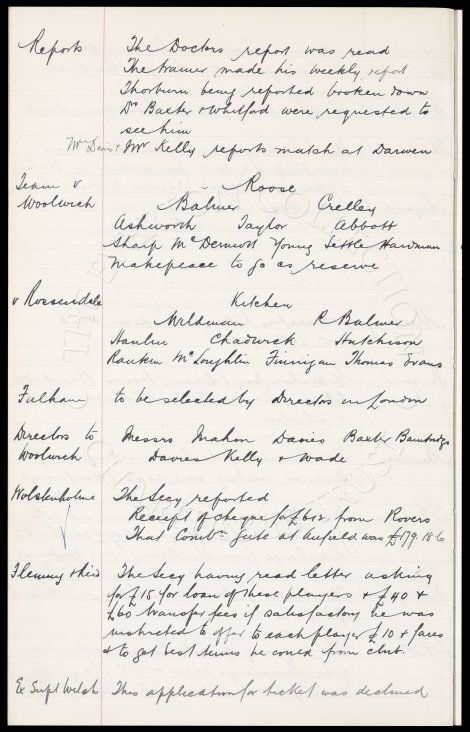 Reports The Doctors report was read
The trainer made his weekly report
Thorburn being reported broken down
Dr Baxter & Whitford were requested to
see him
Mr Davies & Mr Kelly reports match at Darwen
Team v Roose
Woolwich Balmer Crelley
Ashworth Taylor Abbott
Sharp McDermott Young Settle Hardman
Makepeace to go as reserve
v Rossendale Kitchen
Wildman R Balmer
Hanlin Chadwick Hutchison
Rankin McLoughlin Finnigan Thomas Evans
Fulham to be selected by Directors in London
Directors to Messrs Mahon Davies Baxter Bainbridge
Woolwich Davies Kelly & Wade
Wolstenholme The Secy reported
Receipt of cheque for £612 from Rovers
That Combtn gate at Anfield was £179.18.6
Fleming & Reid The Secy having read letter asking
for £15 for loan of these players & £40 &
£60 transfer fees if satisfactory he was
instructed to offer to each player £10 & fares
& to get best terms he could from club.
Ex Supt Welsh This application for ticket was declined